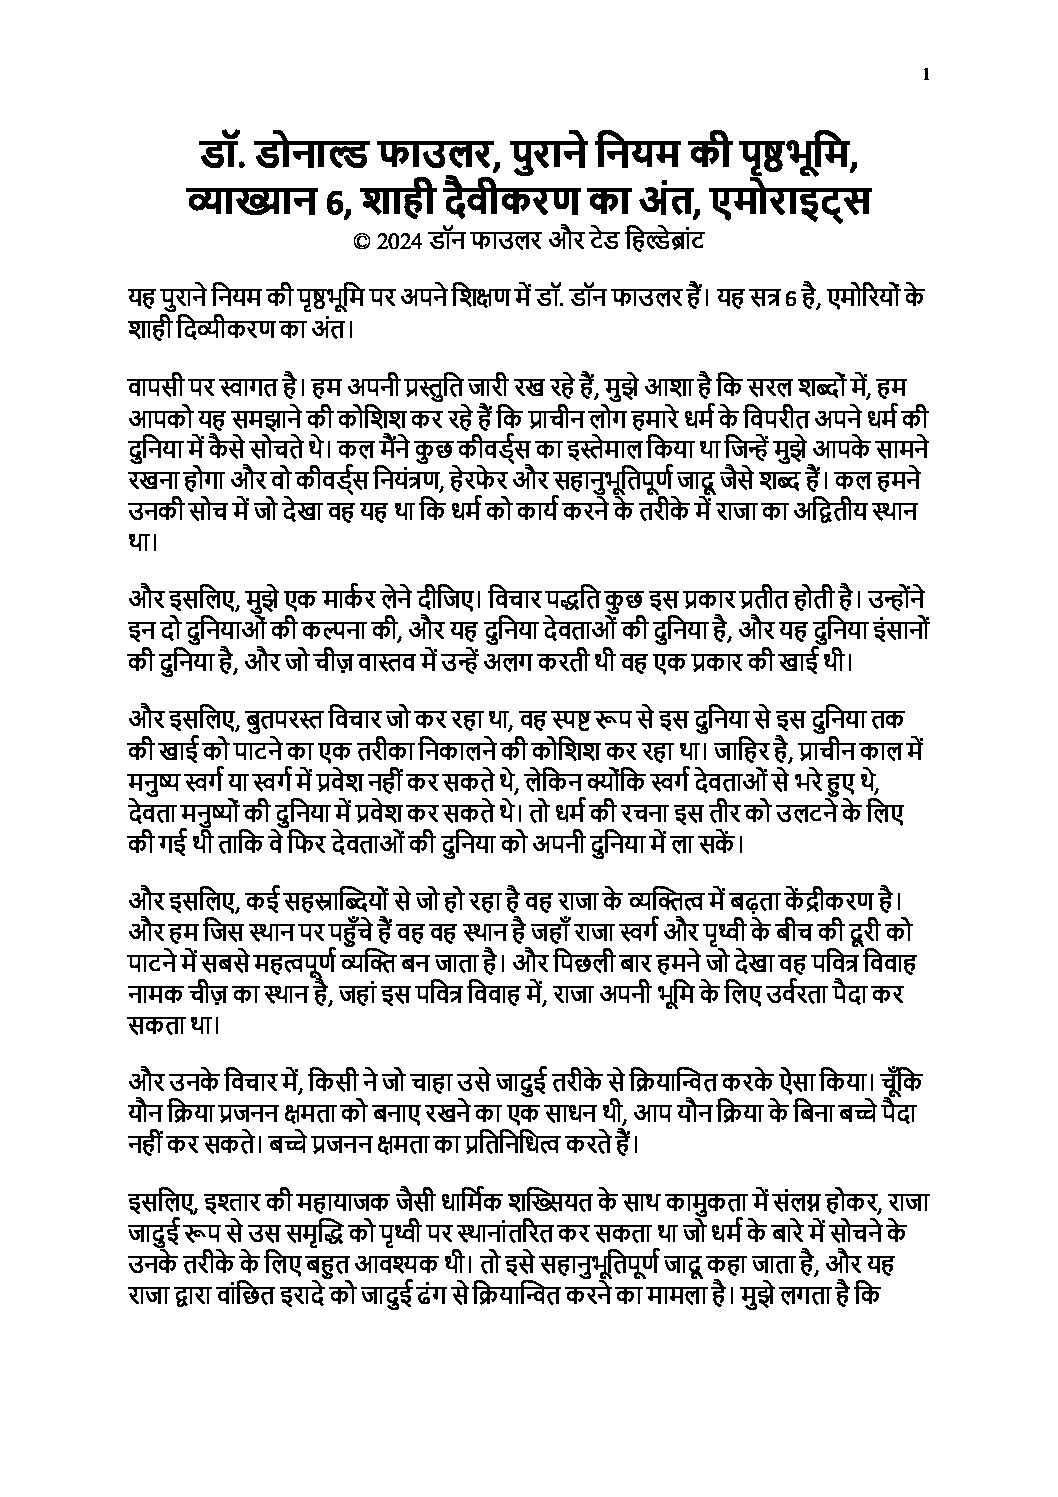 1
डॉ. डोनाल्ड फाउलर, पुराने नियम की पृष्ठभूमि,
व्याख्यान 6, शाही दैवीकरण का अंत, एमोराइट्स
© 2024 डॉन फाउलर और टेड हिल्डेब्रांट
यह पुराने नियम की पृष्ठभूमि पर अपने शिक्षण में डॉ. डॉन फाउलर हैं। यह सत्र 6 है, एमोरियों के
शाही दिव्यीकरण का अंत।
वापसी पर स्वागत है। हम अपनी प्रस्तुति जारी रख रहे हैं, मुझे आशा है कि सरल शब्दों में, हम
आपको यह समझाने की कोशिश कर रहे हैं कि प्राचीन लोग हमारे धर्म के विपरीत अपने धर्म की
दुनिया में कैसे सोचते थे। कल मैंने कुछ कीवर्ड्स का इस्तेमाल किया था जिन्हें मुझे आपके सामने
रखना होगा और वो कीवर्ड्स नियंत्रण, हेरफेर और सहानुभूतिपूर्ण जादू जैसे शब्द हैं। कल हमने
उनकी सोच में जो देखा वह यह था कि धर्म को कार्य करने के तरीके में राजा का अद्वितीय स्थान
था।
और इसलिए, मुझे एक मार्कर लेने दीजिए। विचार पद्धति कुछ इस प्रकार प्रतीत होती है। उन्होंने
इन दो दुनियाओं की कल्पना की, और यह दुनिया देवताओं की दुनिया है, और यह दुनिया इंसानों
की दुनिया है, और जो चीज़ वास्तव में उन्हें अलग करती थी वह एक प्रकार की खाई थी।
और इसलिए, बुतपरस्त विचार जो कर रहा था, वह स्पष्ट रूप से इस दुनिया से इस दुनिया तक
की खाई को पाटने का एक तरीका निकालने की कोशिश कर रहा था। जाहिर है, प्राचीन काल में
मनुष्य स्वर्ग या स्वर्ग में प्रवेश नहीं कर सकते थे, लेकिन क्योंकि स्वर्ग देवताओं से भरे हुए थे,
देवता मनुष्यों की दुनिया में प्रवेश कर सकते थे। तो धर्म की रचना इस तीर को उलटने के लिए
की गई थी ताकि वे फिर देवताओं की दुनिया को अपनी दुनिया में ला सकें।
और इसलिए, कई सहस्राब्दियों से जो हो रहा है वह राजा के व्यक्तित्व में बढ़ता केंद्रीकरण है।
और हम जिस स्थान पर पहुँचे हैं वह वह स्थान है जहाँ राजा स्वर्ग और पृथ्वी के बीच की दूरी को
पाटने में सबसे महत्वपूर्ण व्यक्ति बन जाता है। और पिछली बार हमने जो देखा वह पवित्र विवाह
नामक चीज़ का स्थान है, जहां इस पवित्र विवाह में, राजा अपनी भूमि के लिए उर्वरता पैदा कर
सकता था।
और उनके विचार में, किसी ने जो चाहा उसे जादुई तरीके से क्रियान्वित करके ऐसा किया। चूँकि
यौन क्रिया प्रजनन क्षमता को बनाए रखने का एक साधन थी, आप यौन क्रिया के बिना बच्चे पैदा
नहीं कर सकते। बच्चे प्रजनन क्षमता का प्रतिनिधित्व करते हैं।
इसलिए, इश्तार की महायाजक जैसी धार्मिक शख्सियत के साथ कामुकता में संलग्न होकर, राजा
जादुई रूप से उस समृद्धि को पृथ्वी पर स्थानांतरित कर सकता था जो धर्म के बारे में सोचने के
उनके तरीके के लिए बहुत आवश्यक थी। तो इसे सहानुभूतिपूर्ण जादू कहा जाता है, और यह
राजा द्वारा वांछित इरादे को जादुई ढंग से क्रियान्वित करने का मामला है। मुझे लगता है कि